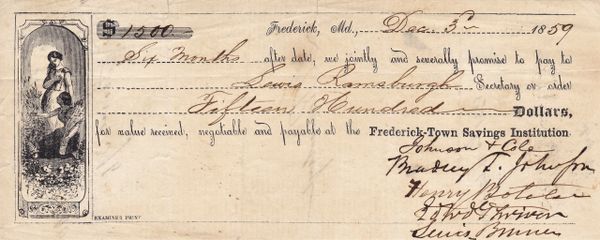 $1500 Frederick, Md., Dec 3rd 1859
Six Months after date, we jointly and severally promise to pay to
Lewis Ramsburgh Secretary or order
Fifteen Hundred Dollars,
for value received, negotiable and payable at the Frederick-Town Savings Institution.
Johnson & Cole
Bradley T. Johnson
Henry Boteler
Edwd Shriver
Lewis Bruner
EXAMINER PRINT